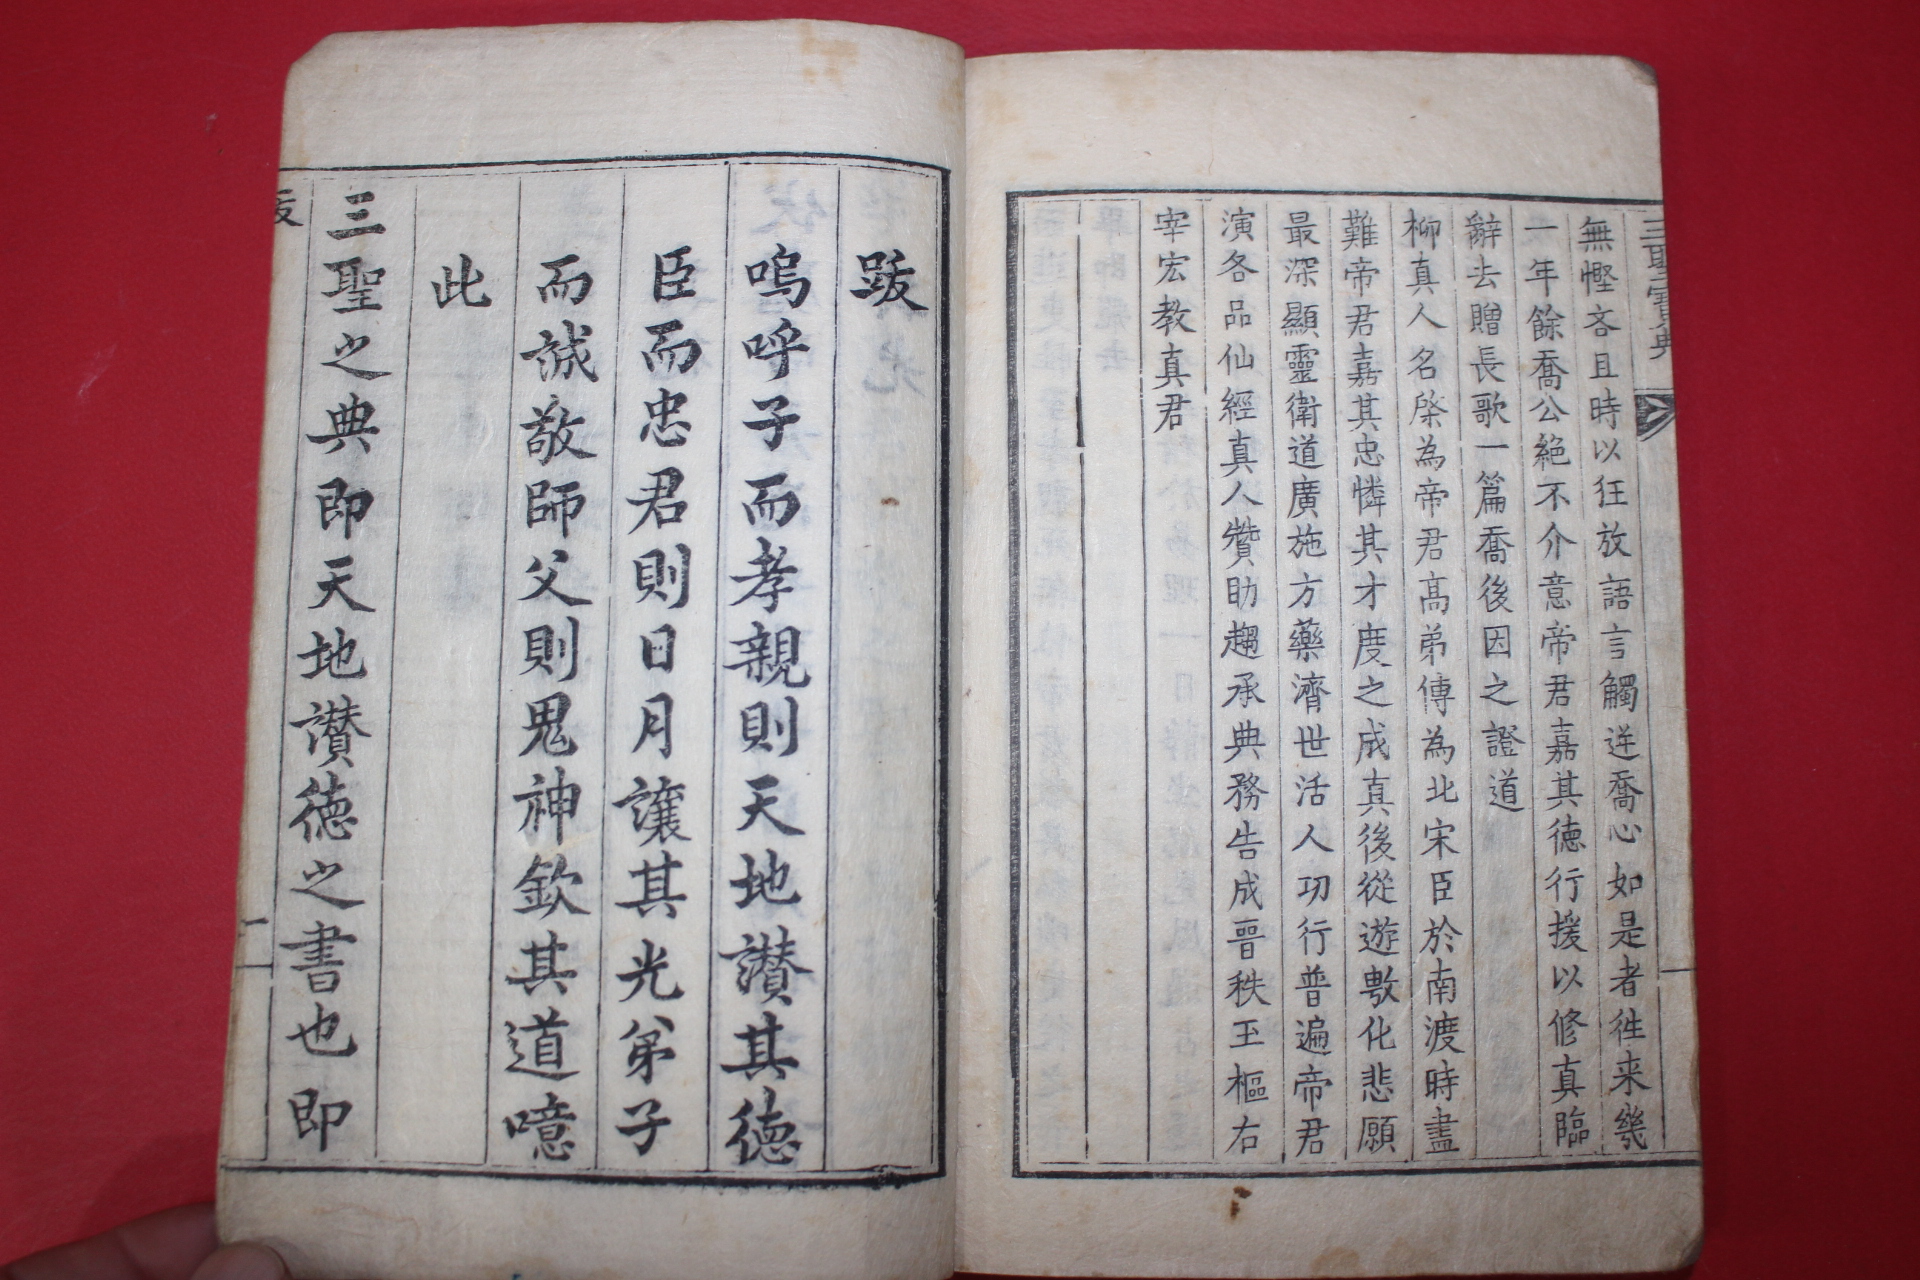 三聖寶典
無慳吝且時以狂放語言觸逆喬心如是者徃来幾
一年餘喬公絶不介意帝君嘉其德行援以修真臨
辭去贈長歌一篇喬後因之證道
柳真人名棨為帝君高弟傳為北宋臣於南渡時盡
難帝君嘉其忠憐其才度之成真後從遊敷化悲願
最深顯靈衛道廣施方藥濟世活人功行普遍帝君
演各品仙經真人贊助趨承典務告成晉秩玉樞右
宰宏教真君
跋
嗚呼子而孝親則天地讃其德
臣而忠君則日月讓其光弟子
而誠敬師父則鬼神欽其道噫
此
三聖之典即天地讃德之書也即
二